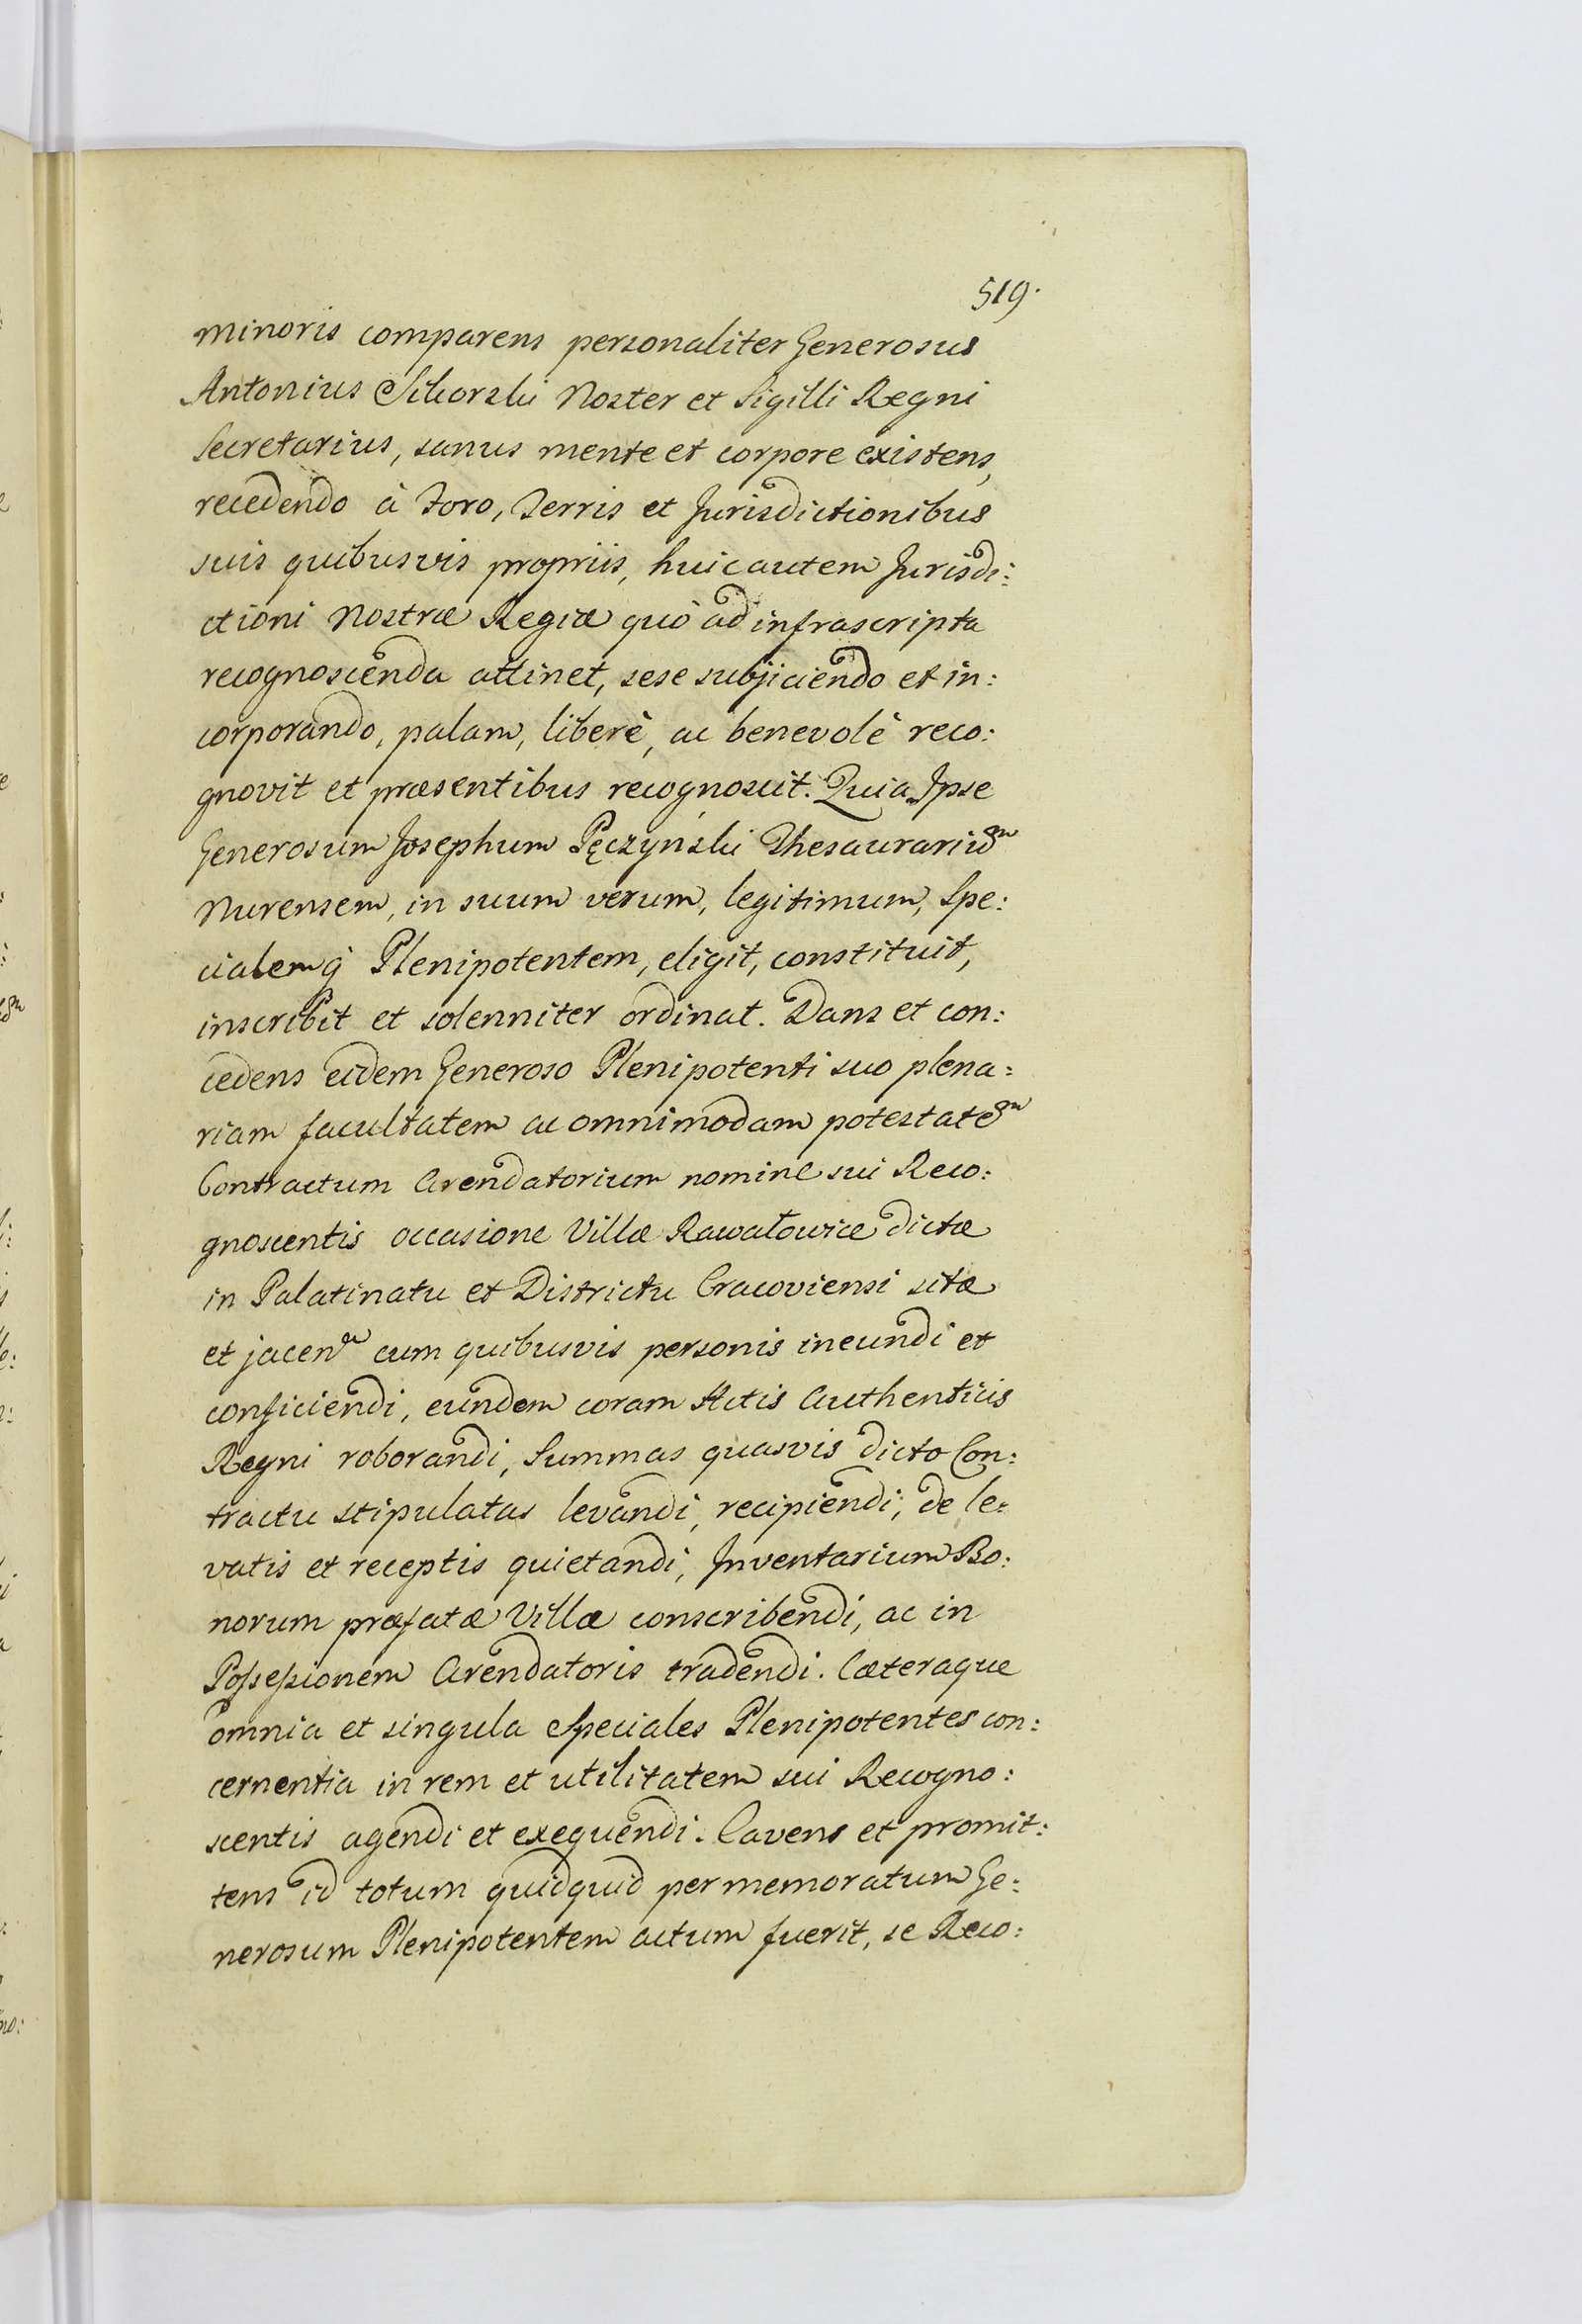 519.
minoris comparens personaliter Generosus
Antonius Sikorski Noster et Sigilli Regni
Secretarius, sanus mente et corpore existens,
recedendo à Foro, Terris et Jurisdictionibus
suis quibusvis propriis, huic autem Jurisdi:
ctioni Nostræ Regiæ quò ad infrascripta
recognoscenda attinet, sese subjiciendo et in:
corporando, palam, liberè, ac benevolè reco:
gnovit et præsentibus recognoscit. Quia Ipse
Generosum Josephum Pęczyński Thesaurariũm
Nurensem, in suum verum, legitimum, Spe:
cialemq̀ Plenipotentem, eligit, constituit,
inscribit et solenniter ordinat. Dans et con:
cedens eidem Generoso Plenipotenti suo plena:
riam facultatem ac omnimodam potestatem
Contractum Arendatorium nomine sui Reco:
gnoscentis occasione Villæ Rawałowice dictæ
in Palatinatu et Districtu Cracoviensi sitæ
et jacen. cum quibusvis personis ineundi et
conficiendi, eundem coram Actis Authenticis
Regni roborandi, Summas quasvis dicto Con:
tractu stipulatas levandi, recipiendi, de le:
vatis et receptis quietandi, Inventarium Bo:
norum præfatæ Villæ conscribendi, ac in
Possessionem Arendatoris tradendi. Cæteraque
omnia et singula Speciales Plenipotentes con:
cernentia in rem et utilitatem sui Recogno:
scentis agendi et exequendi. Cavens et promit:
tens id totum quidquid per memoratum Ge:
nerosum Plenipotentem actum fuerit, se Reco: